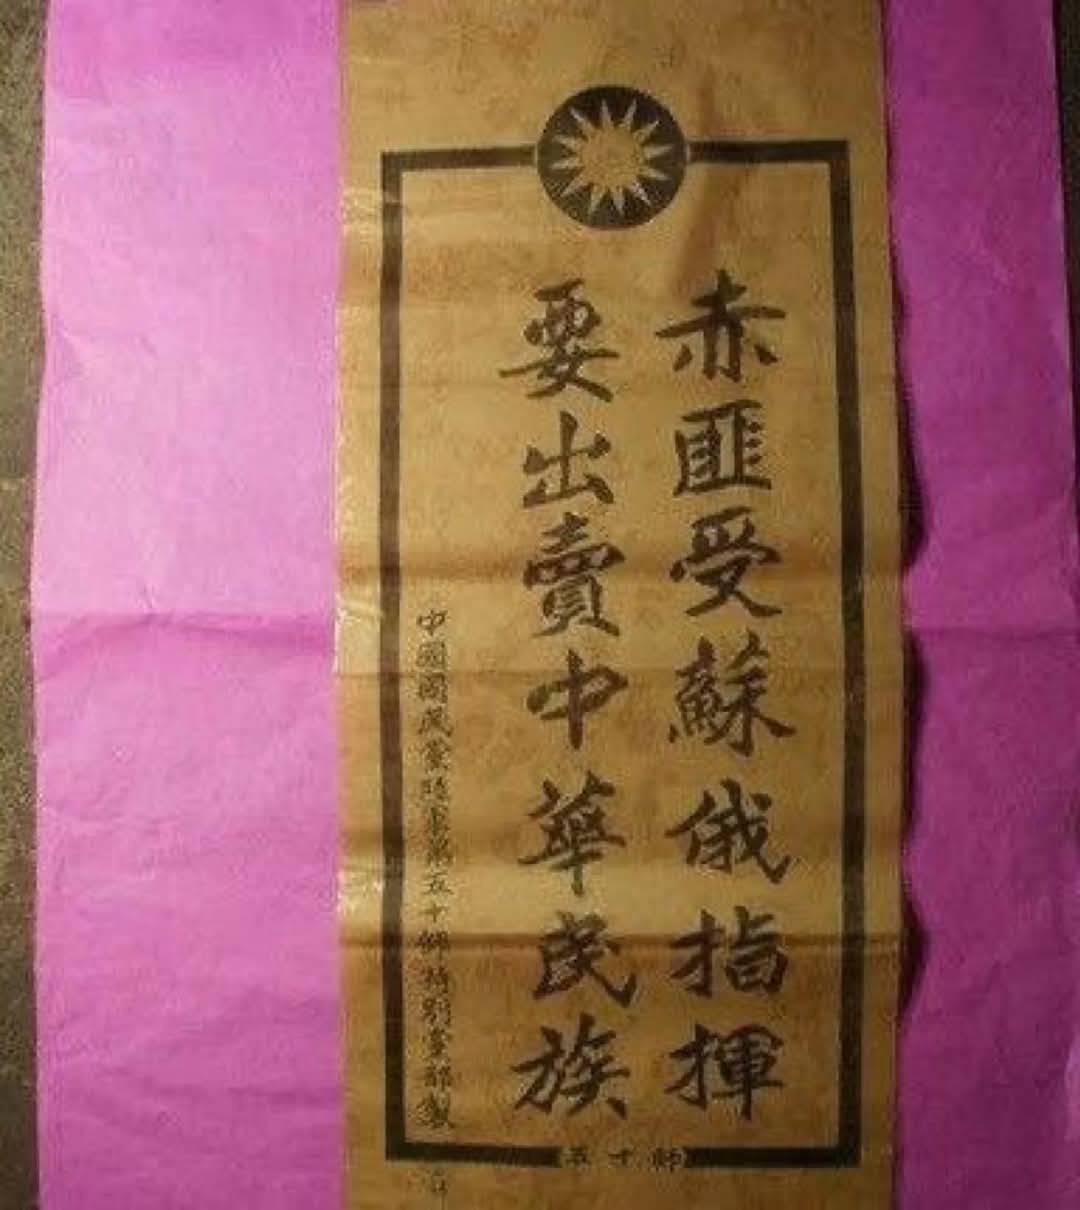 赤匪受蘇俄指揮
要出賣中華民族
中國國民黨陸軍第五十師特別黨部製
五十師